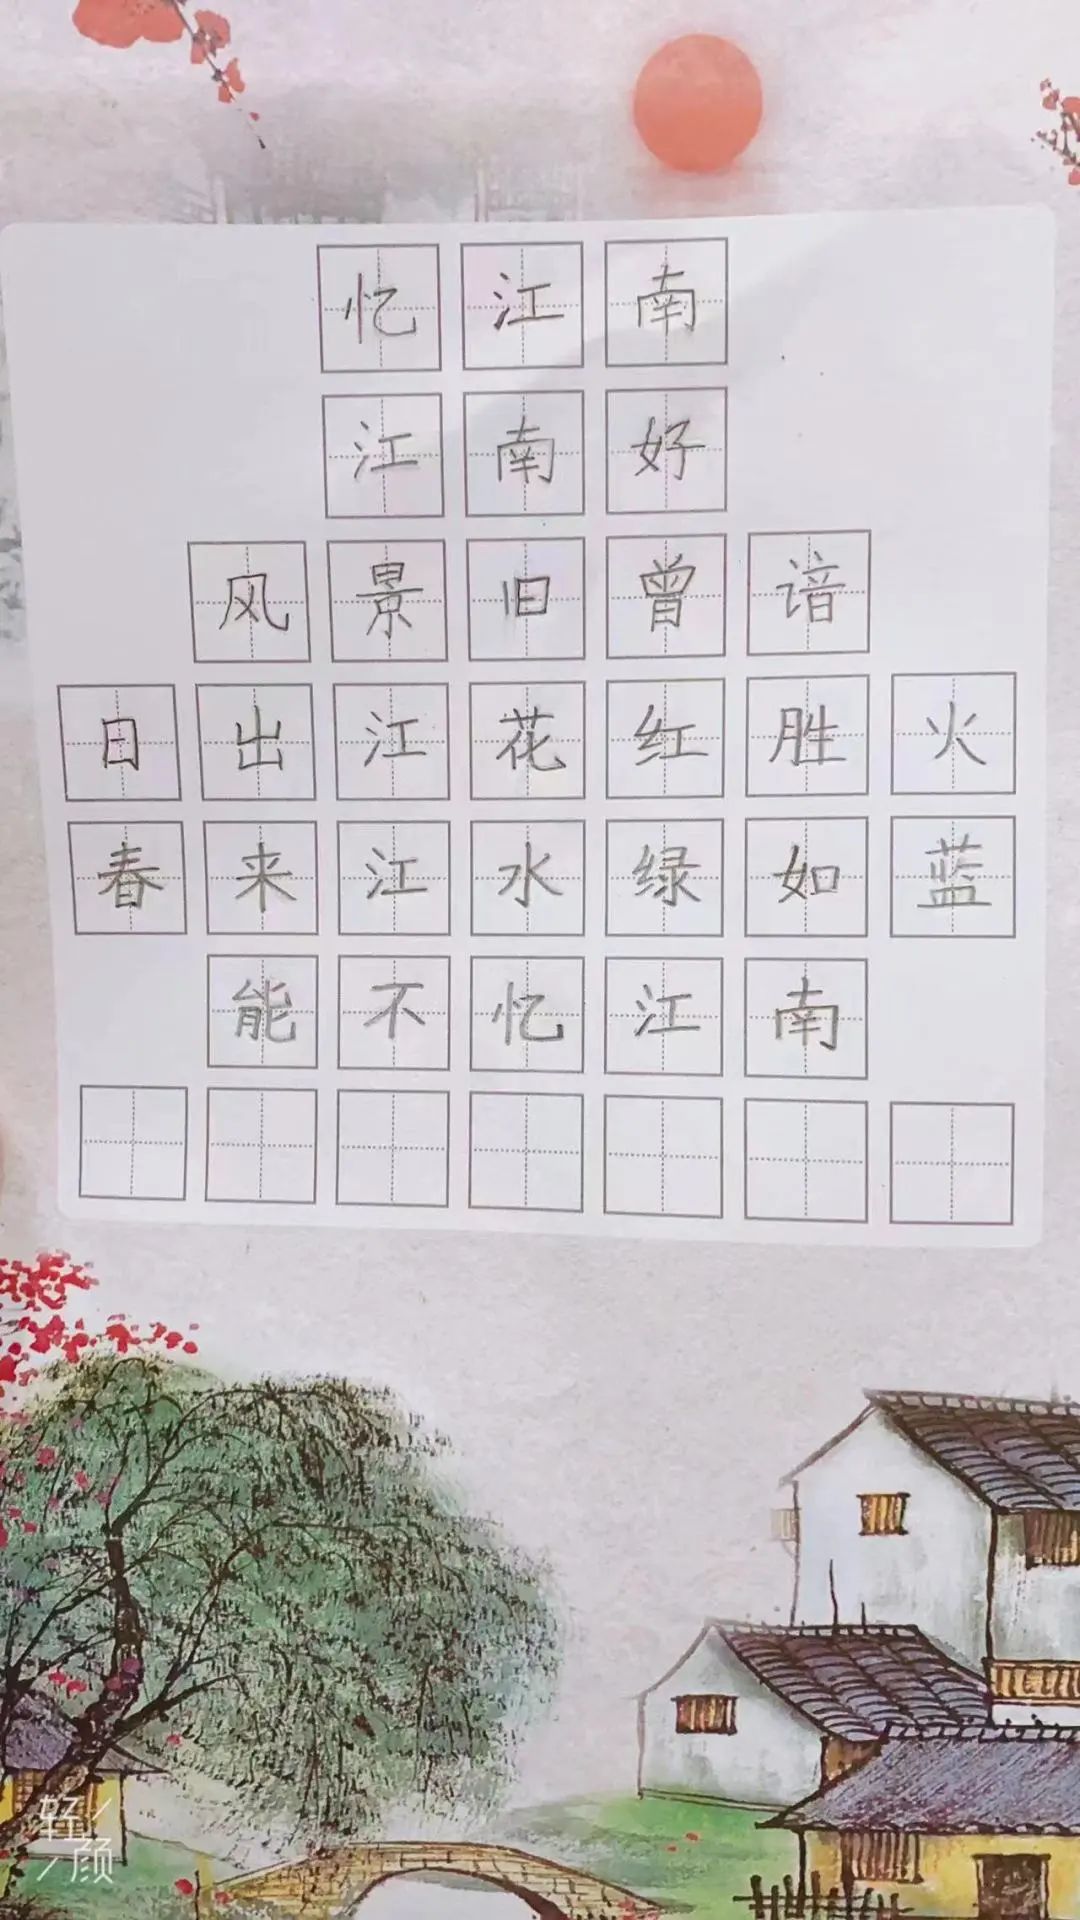 忆江南
江南好
风景旧曾谙
日出江花红胜火
春来江水绿如蓝
能不忆江南
轻颜